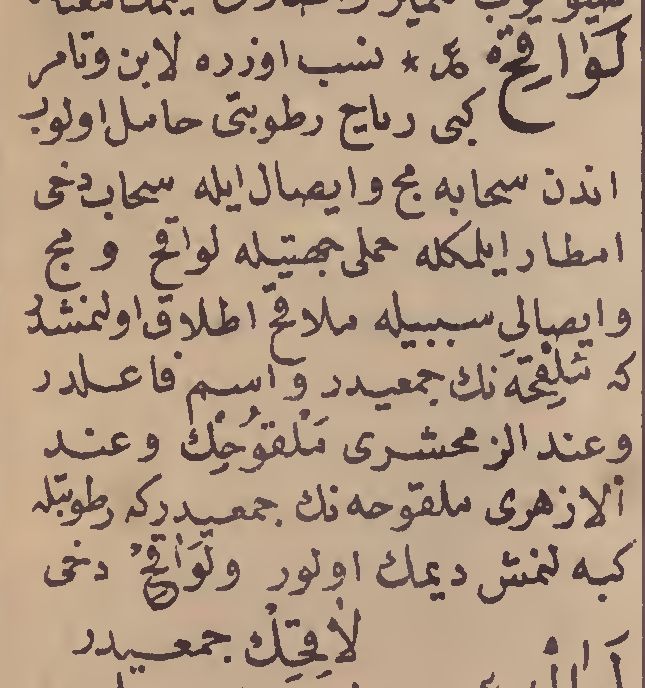 لَوَاقِحْ ع * نسب اوزره لابن وتامر
كبى رياح رطوبتى حامل اولوب
اندن سحابه مج وايصال ايله سحاب دخى
امطار ايلمكله حملى جهتيله لواقح و مج
وايصالى سببيله ملاقح اطلاق اولنمشدر
كه مُلْقِحَه نك جمعيدر و اسم فاعلدر
وعند الزمخشرى مَلْقوُحِكْ وعند
الازهرى ملقوحه نك جمعيدركه رطوبتله
كبه لنمش ديمك اولور ولَوَاقِحْ دخى
لَاقِحِكْ جمعيدر